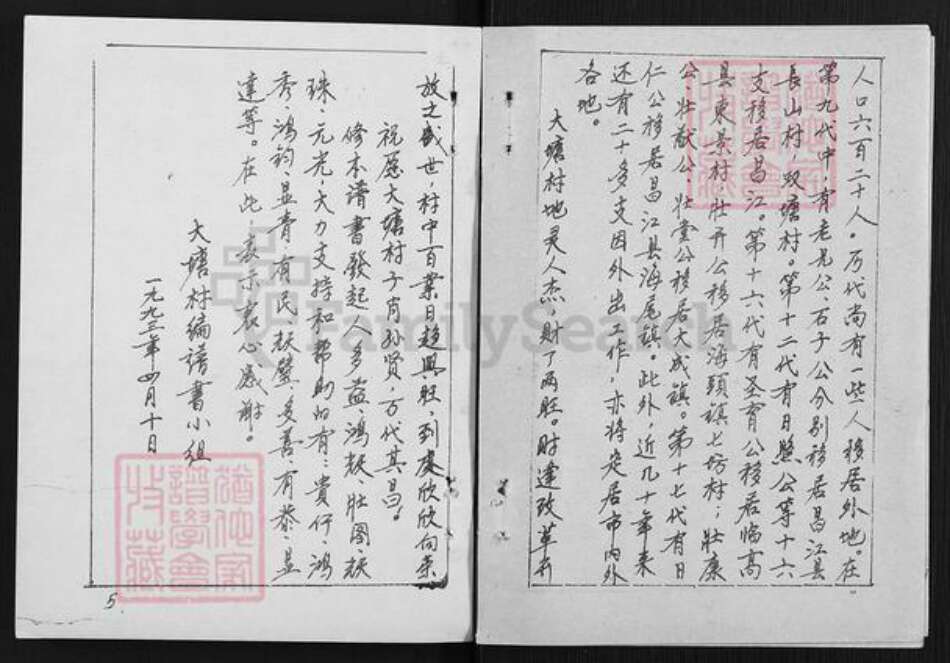 人口六百二十人。历代尚有一些人移居外地。在
第九代中，有老尤公、石子公分别移居昌江县
長山村、双塘村。第十二代有日照公等十六
支移居昌江。第十六代有圣育公移居临高
县東景村，壮开公移居海頭鎮七坊村；壮廉
公、壮献公、壮堂公移居大成鎮。第十七代有日
仁公移居昌江县海尾鎮。此外，近几十年来
还有二十多支因外出工作，亦将定居市内外
各地。
大塘村地灵人杰，財丁两旺。时逢改革开
放之盛世，村中百業日趋興旺，到處欣欣向荣
祝愿大塘村子肖孙贤，万代其昌。
修本譜書發起人多益、鴻敖、壮图、敖
珠、元光，大力支持和帮助的有：貴仔、鴻
秀、鴻鈞、显青、有民、敖璧、多喜、有恭、显
達等。在此，表示衷心感謝。
大塘村编譜書小组
一九九三年四月十日
5
FamilySearch
譜學會
收藏